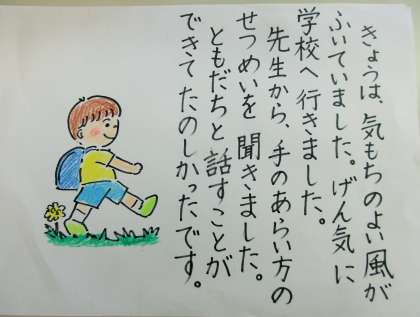 きょうは、気もちのよい風が
ふいていました。げん気に
学校へ行きました。
先生から、手のあらい方の
せつめいを聞きました。
ともだちと話すことが
できてたのしかったです。